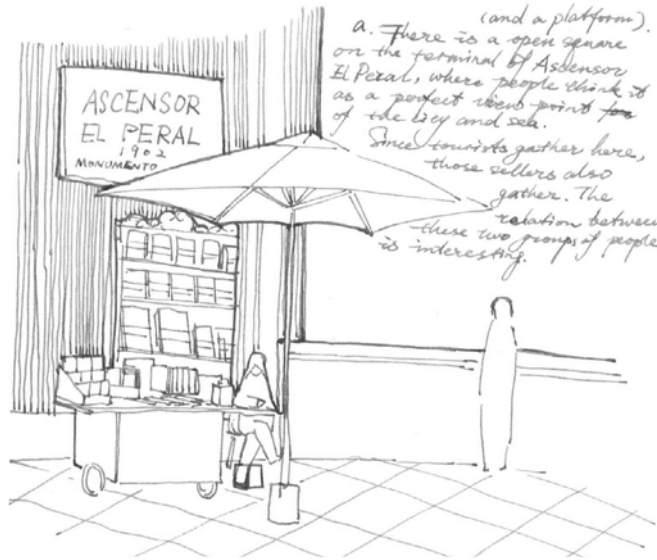 ASCENSOR
EL PERAL
1902
MONUMENTO
(and a platform).
a. There is a open square
on the terminal of Ascensor
El Peral, where people think it
as a perfect view point for
of the city and sea.
Since tourists gather here,
those sellers also
gather. The
relation between
these two groups of people
is interesting.